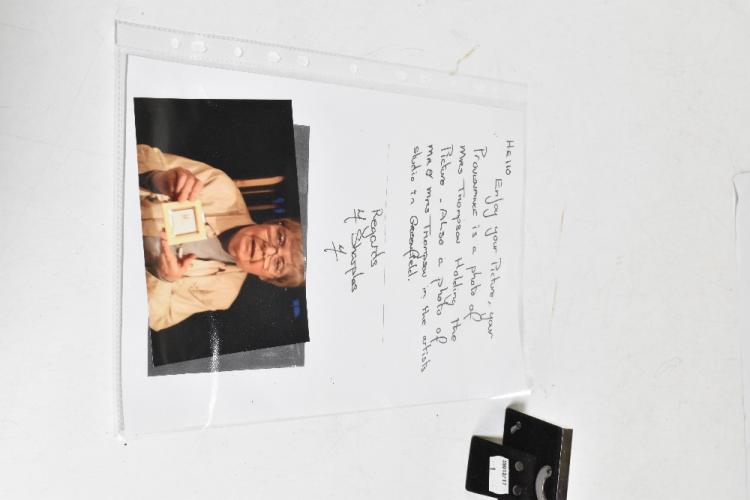 Hello
Enjoy your Picture, your
Provenance is a photo of
Mrs Thompson Holding the
Picture - Also a photo of
Mr & Mrs Thompson in the artists
studio in Greenfield.
Regards
Sharples